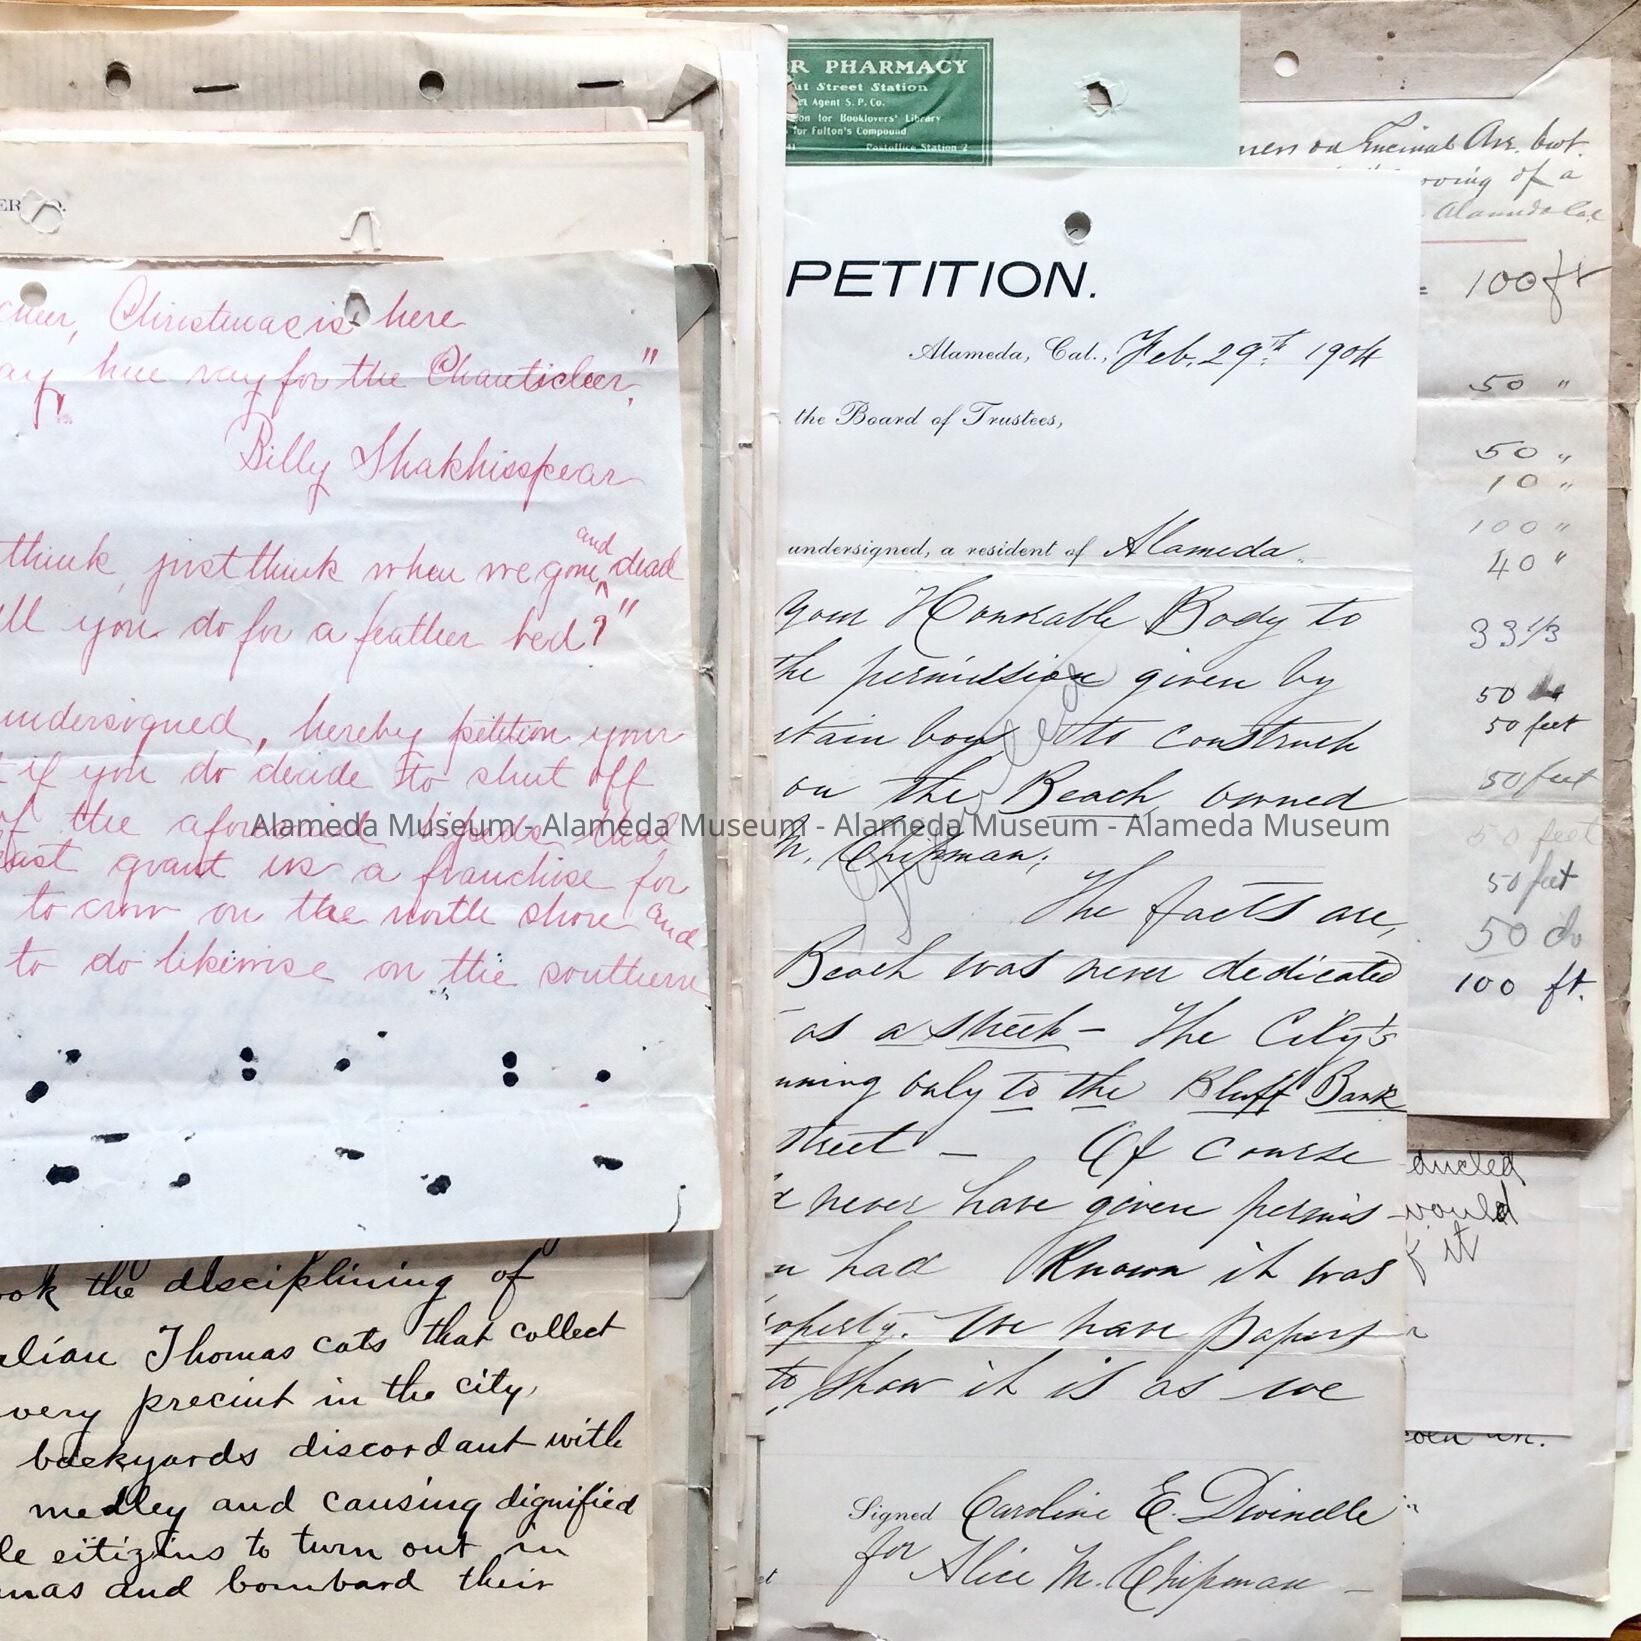 ER CO.
cheer, Christmas is here
hue vay for the Chanticleer,"
Billy Shakhisspear
think, just think when we gone and dead
ll you do for a feather bed?"
undersigned, hereby petition your
t if you do decide to shut off
of the aforesaid bipeds that
east grant us a franchise for
to crow on the north shore and
to do likewise on the southern
ook the disciplining of
alian Thomas cats that collect
very precinct in the city,
backyards discordant with
medley and causing dignified
le citizins to turn out in
mas and bombard their
R PHARMACY
ut Street Station
et Agent S. P. Co.
on for Booklovers' Library
for Fulton's Compound
41 Postoffice Station 2
PETITION.
Alameda, Cal., Feb. 29th 1904
the Board of Trustees,
undersigned, a resident of Alameda.
your Honorable Body to
the permission given by
tain boys to construct
on the Beach owned
N. Chipman;
The facts are,
Beach was never dedicated
as a street – The City's
nning only to the Bluff Bank
street – Of course
d never have given permis-
n had Known it was
operty. We have papers
to show it is as we
Signed Caroline E. Dwinelle
for Alice M. Chipman –
ners on Encinal Ave. bwt.
oving of a
Alameda Cal.
= 100 ft
50 "
50 "
10 "
100 "
40 "
33 1/3
50
50 feet
50 feet
50 feet
50 feet
50 do
100 ft.
ducted
would
f it
Alameda Museum - Alameda Museum - Alameda Museum - Alameda Museum